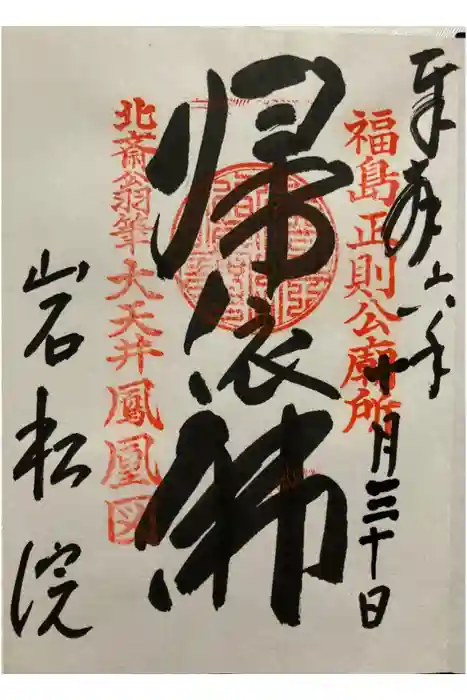 奉拝 六年十月三十日
福島正則公廟所
帰依佛
北斎翁筆大天井鳳凰図
岩松院